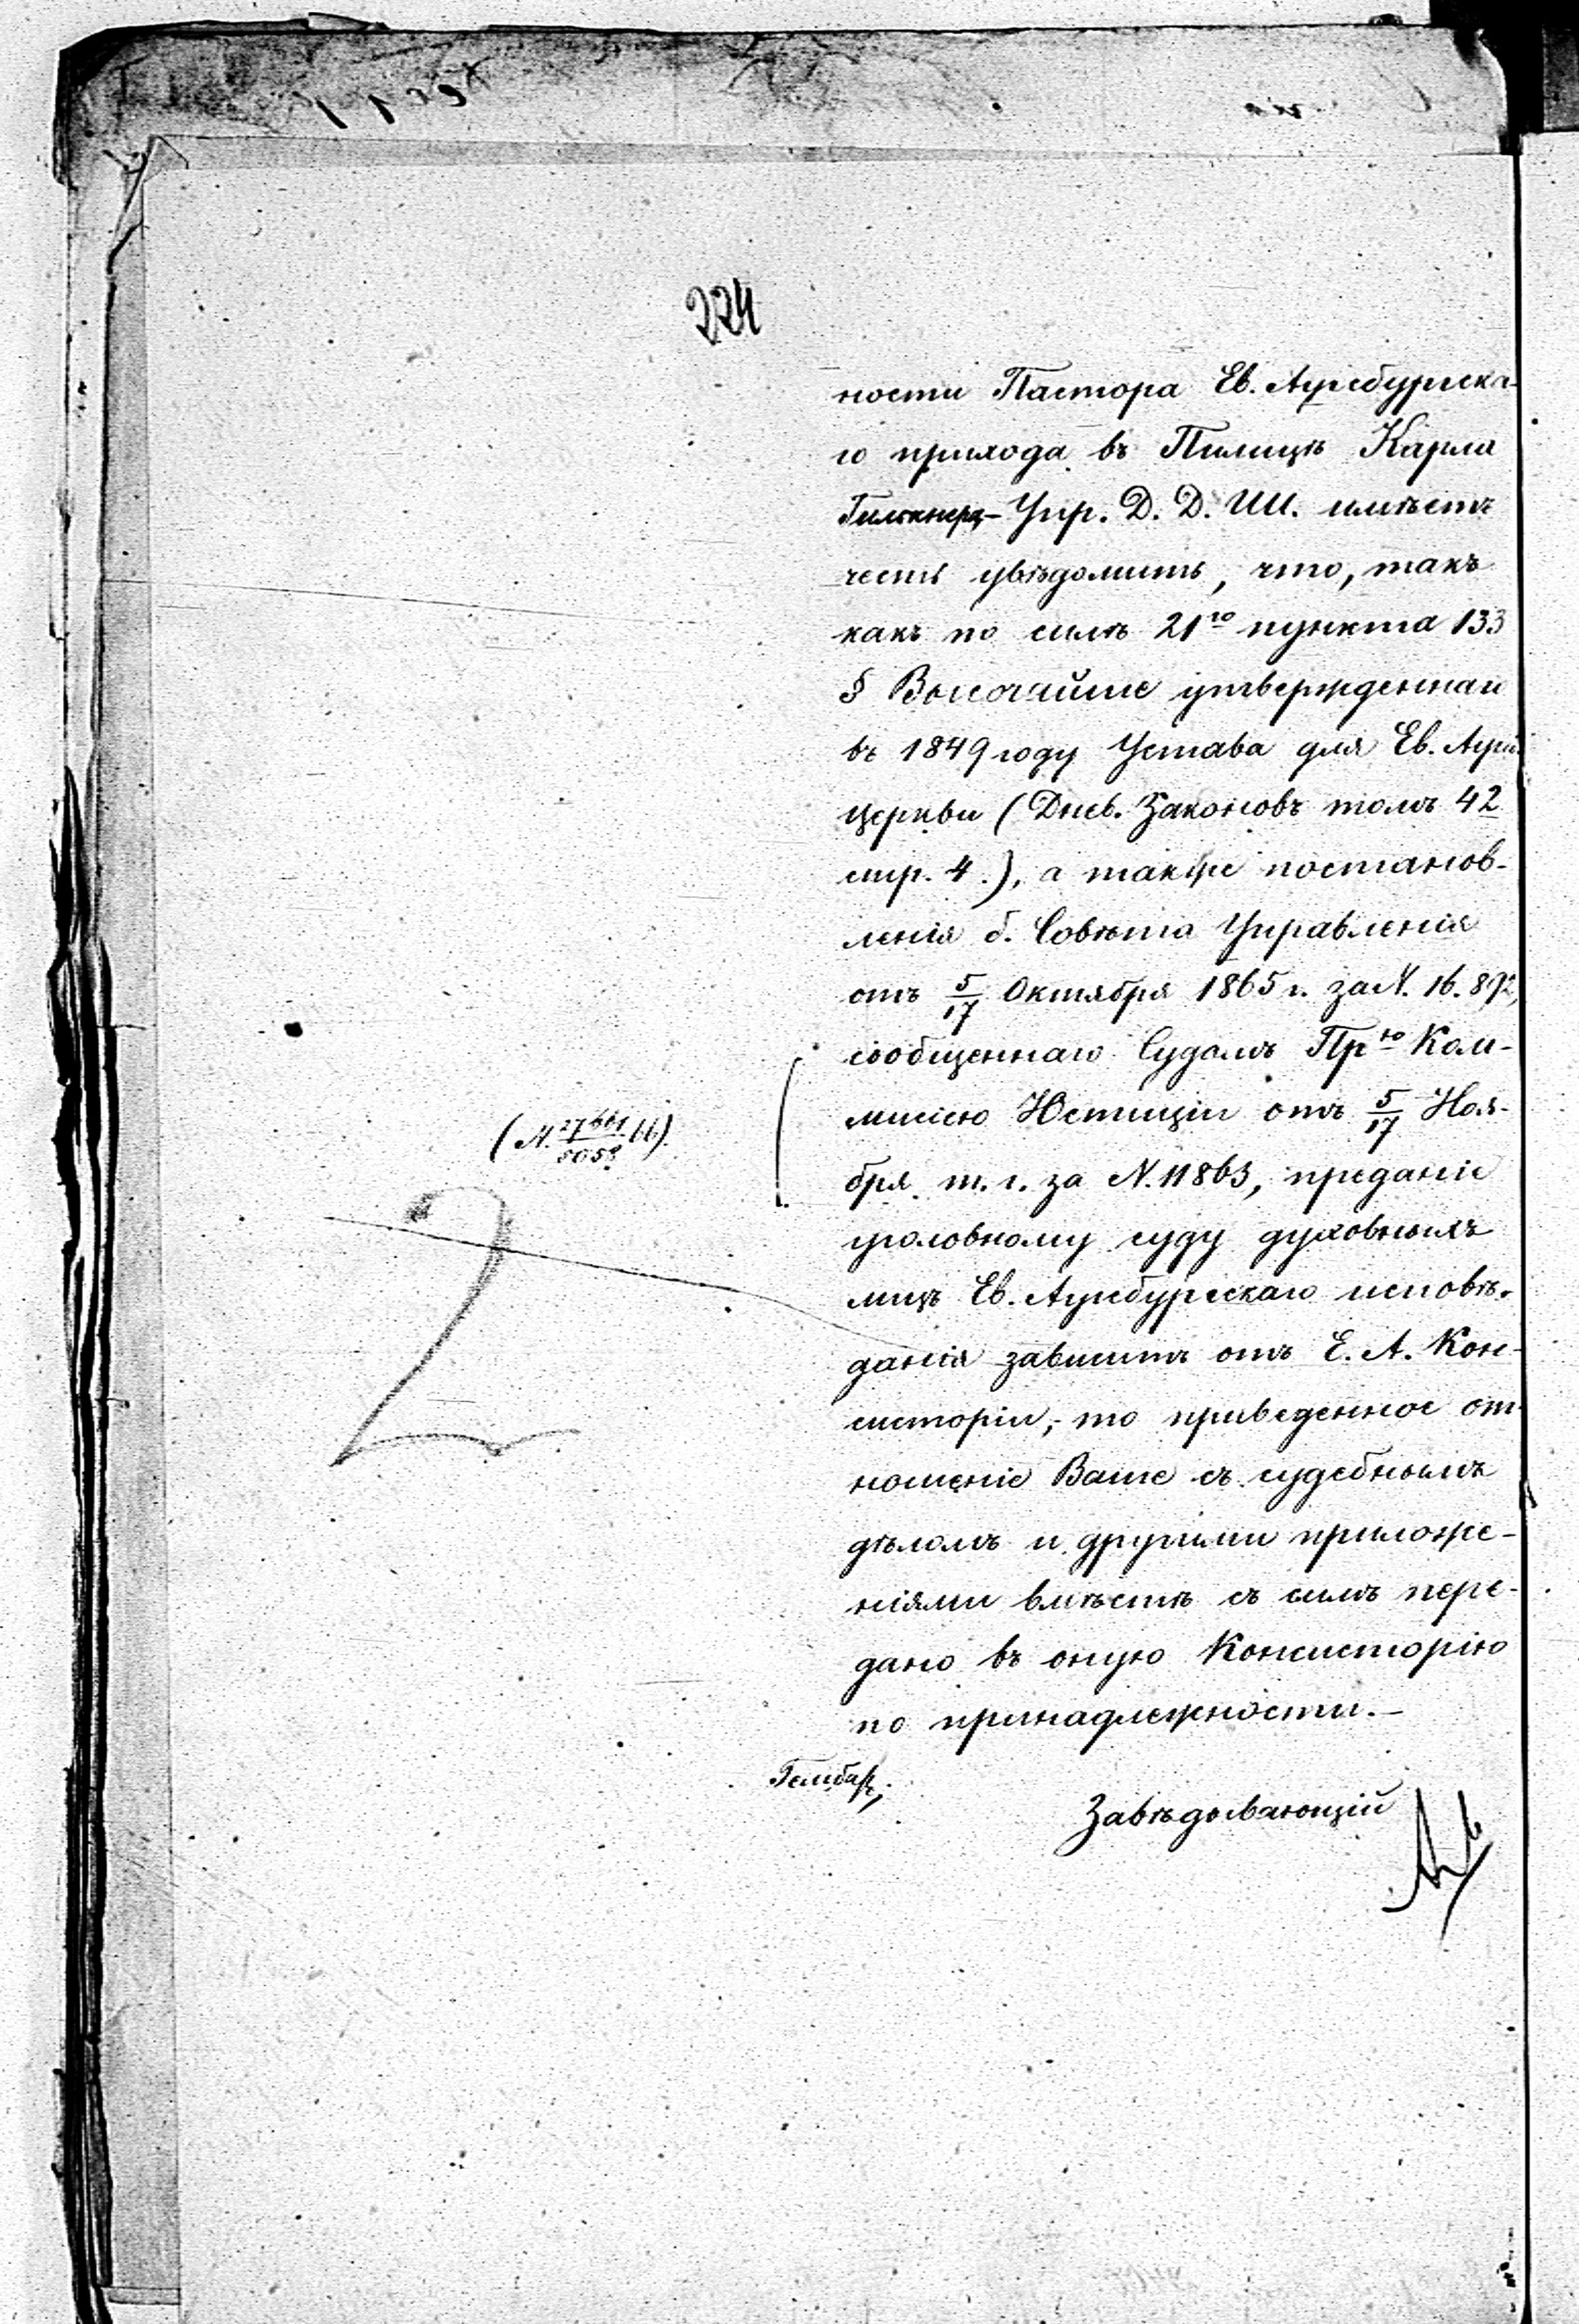 224
ности Пастора Ев. Аугсбургска-
го прихода въ Пилицѣ Карла
Упр. Д. Д. ИИ. имѣетъ
честь увѣдомить, что, такъ
какъ по силѣ 21го пункта 133
§ Высочайше утвержденнаго
въ 1849 году Устава для Ев. Аугс.
церкви (Днев. Законовъ томъ 42
стр. 4.), а также постанов-
ленія б. Совѣта Управленія
отъ 5/17 Октября 1865 г. за N. 16.892,
сообщеннаго Судамъ Прю Ком-
мисіею Юстиціи отъ 5/17 Ноя-
(N. 27661/8058 66)
бря т. г. за N. 11863, преданіе
уголовному суду духовныхъ
лицъ Ев. Аугсбургскаго исповѣ-
данія зависитъ отъ Е. А. Кон-
систоріи,- то приведенное от-
ношеніе Ваше съ судебнымъ
дѣломъ и другими приложе-
ніями вмѣстѣ съ симъ пере-
дано въ оную Консисторію
по принадлежности.-
Завѣдывающій